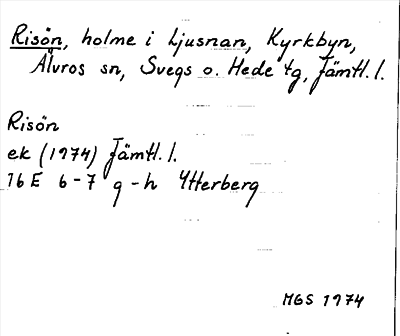 Risön, holme i Ljusnan, Kyrkbyn,
Älvros sn, Svegs o. Hede tg, Jämtl. l.
Risön
ek (1974) Jämtl. l.
16 E 6-7 g-h Ytterberg
MGS 1974